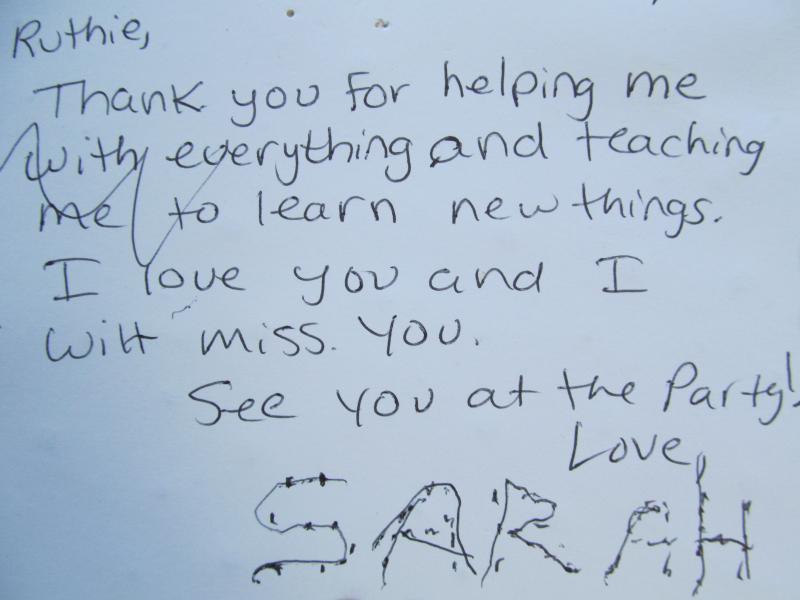 Ruthie,
Thank you for helping me
with everything and teaching
me to learn new things.
I love you and I
will miss you.
See you at the Party!
Love,
SARAH